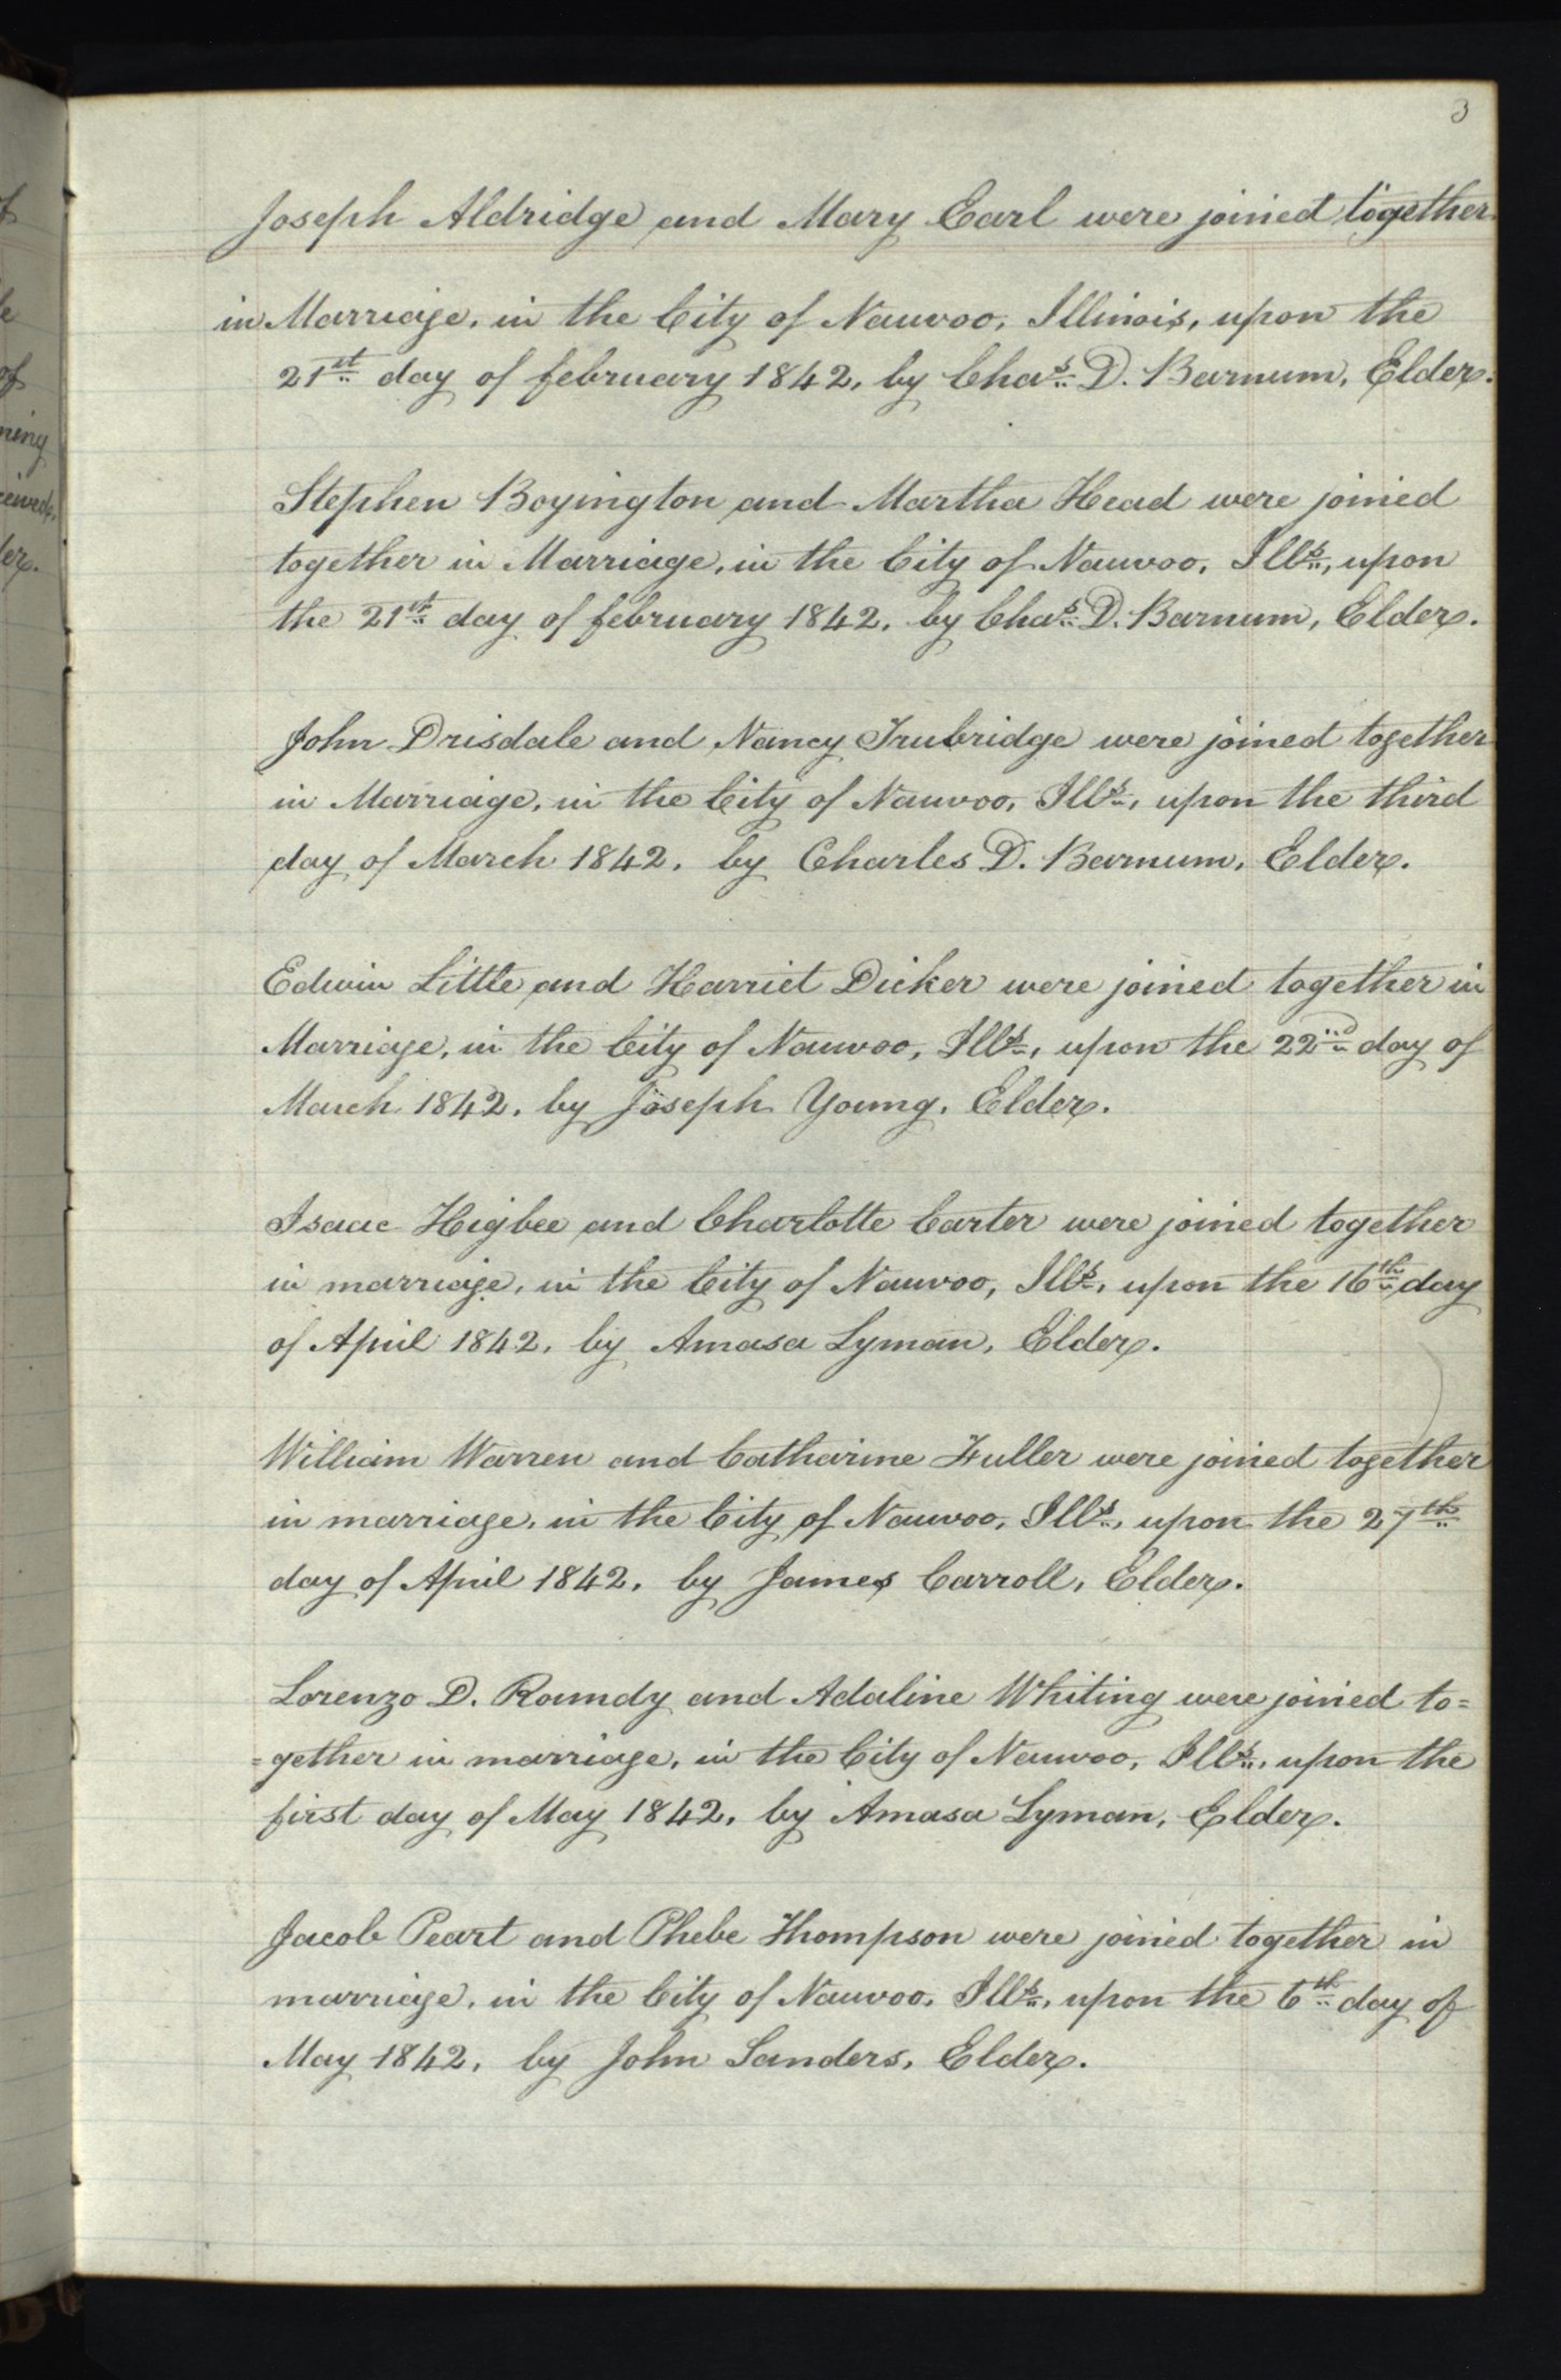 3
Joseph Aldridge and Mary Carl were joined together
in Marriage, in the City of Nauvoo, Illinois, upon the
21st day of february 1842, by Chas. D. Barnum, Elder.
Stephen Boyington and Martha Head were joined
together in Marriage, in the City of Nauvoo, Ills., upon
the 21st day of february 1842, by Chas. D. Barnum, Elder.
John Drisdale and Nancy Trubridge were joined together
in Marriage, in the City of Nauvoo, Ills., upon the third
day of March 1842, by Charles D. Barnum, Elder.
Edwin Little and Harriet Dicker were joined together in
Marriage, in the City of Nauvoo, Ills., upon the 22nd day of
March 1842, by Joseph Young, Elder.
Isaac Higbee and Charlotte Carter were joined together
in marriage, in the City of Nauvoo, Ills., upon the 16th day
of April 1842, by Amasa Lyman, Elder.
William Warren and Catharine Fuller were joined together
in marriage, in the City of Nauvoo, Ills., upon the 27th
day of April 1842, by James Carroll, Elder.
Lorenzo D. Roundy and Adaline Whiting were joined to=
=gether in marriage, in the City of Nauvoo, Ills., upon the
first day of May 1842, by Amasa Lyman, Elder.
Jacob Peart and Phebe Thompson were joined together in
marriage, in the City of Nauvoo, Ills., upon the 6th day of
May 1842, by John Sanders, Elder.